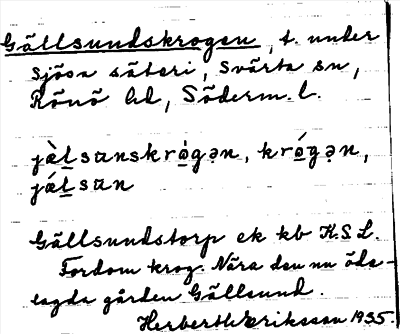 Gällsundskrogen, t. under
Sjösa säteri, Svärta sn,
Rönö hd, Söderm. l.
jæ̀l̲sɯnskrò̲gə̣n, kró̲gə̣n,
jǽl̲sɯn
Gällsundstorp ek kb K.S.L.
Fordom krog. Nära den nu öde-
lagda gården Gällsund.
Herbert W Eriksson 1935.